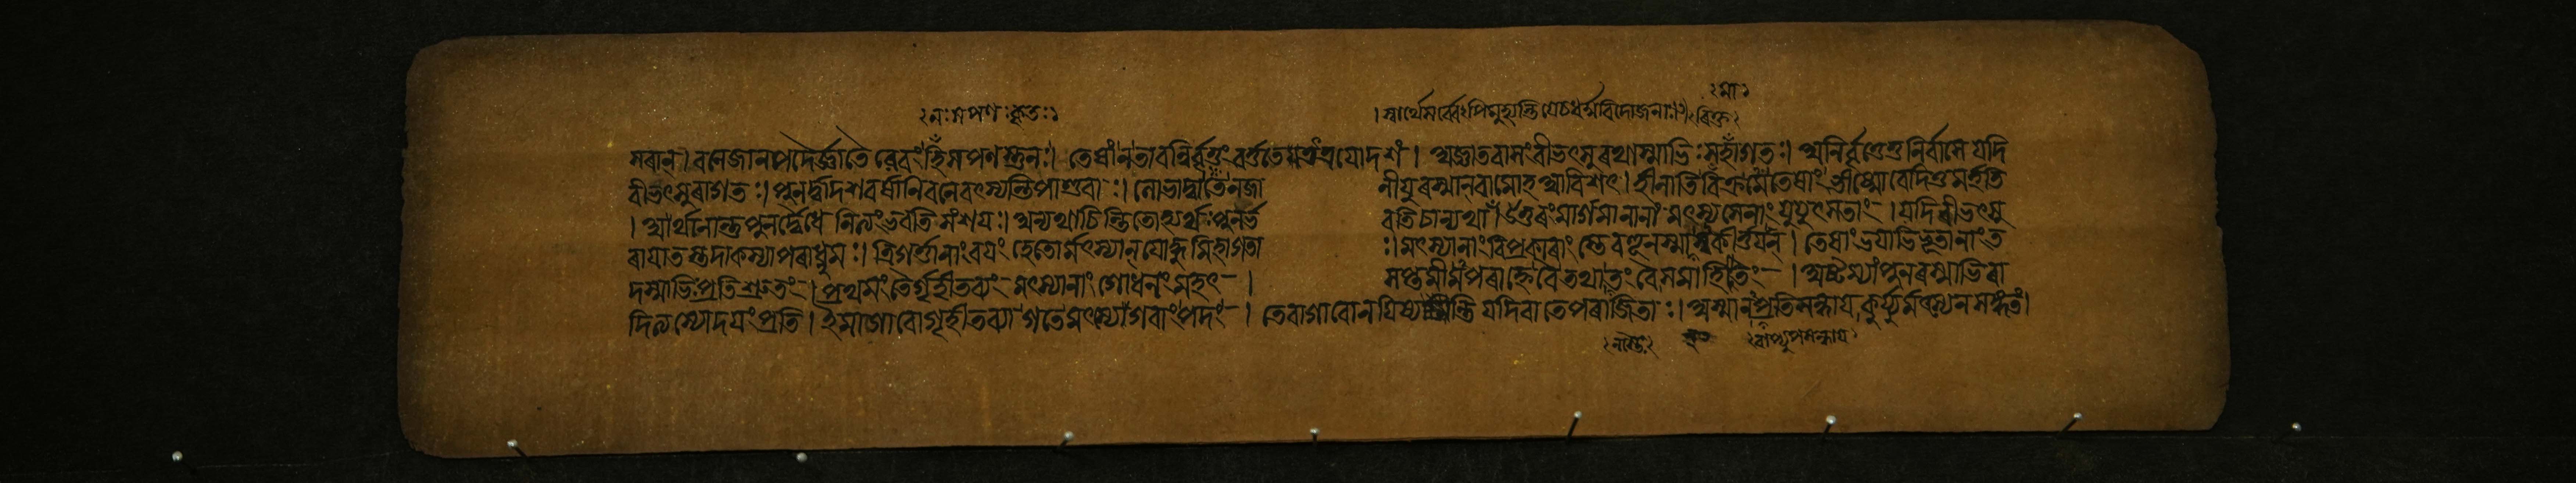 নঃ স পণঃ কৃতঃ
। স্বার্থে সর্ব্বেপি মুহ্যন্তি যে চ ধর্ম্মবিদো জনাঃ। ৰিক্ত
সৰান্। বনে জানপদৈৰ্জ্ঞাতৈৰেবং হি স পণস্তু নঃ। তেষাং ন তাবন্নিৰ্বৃত্তং বৰ্ত্ততে ত্রযোদশং। অজ্ঞাতবাসং বীভৎসুৰথাস্মাভিঃ সহাগতঃ। অনিৰ্বৃত্তে তু নিৰ্বাসে যদি
বীভৎসুৰাগতঃ। পুনৰ্দ্বাদশবৰ্ষানি বনে বৎস্যন্তি পাণ্ডবাঃ। লোভাদ্বা তে ন জা নীযুৰস্মান্ বা মোহ আবিশৎ। হীনাতি বিক্রমেতেষাং ভীষ্মো বেদিতুমৰ্হতি
। অৰ্থানান্তু পুনৰ্দ্বৈধে নিত্যং ভবতি সংশযঃ। অন্যথা চিন্তিতো হ্যৰ্থঃ পুনৰ্ভ বতি চান্যথা। উত্তৰং মাৰ্গমানানাং মৎস্যসেনাং যুযুৎসতাং। যদি বীভৎসু
ৰাযাতস্তদা কস্যাপৰাধ্নুমঃ। ত্রিগৰ্ত্তানাং বযং হেতোৰ্মৎস্যান্ যোদ্ধুমিহাগতা ঃ। মৎস্যানাং বিপ্রকাৰাংস্তে বহূনস্মান্নকীৰ্ত্তযন্। তেষাং ভযাভিভূতানাং ত
দস্মাভিঃ প্রতিশ্রুতং। প্রথমং তৈৰ্গৃহীতব্যং মৎস্যানাং গোধনং মহৎ। সপ্তমীমপৰাহ্নে বৈ তথা তং বৈ সমাহিতং। অষ্টম্যাং পুনৰস্মাভিৰা
দিত্যস্যোদযং প্রতি। ইমা গাবো গৃহীতব্যা গতে মৎস্যে গবাং পদং। তে বা গাবো ন যিষ্যন্তি যদি বা তে পৰাজিতাঃ। অস্মান্ প্রতিসন্ধায কুৰ্য্যুৰ্মৎস্যেন সঙ্গতং।
বাপ্যুপসন্ধায